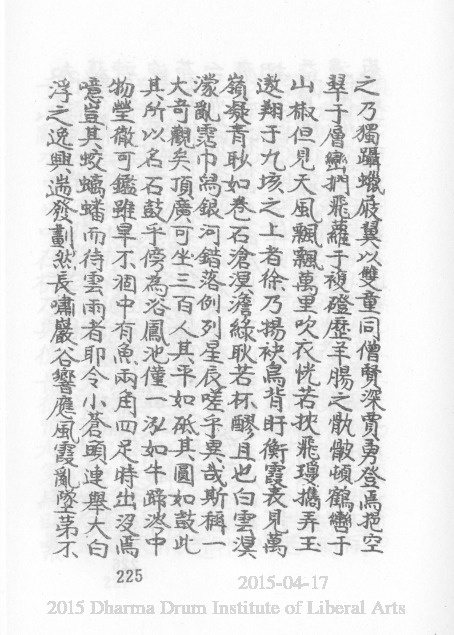 之乃獨躡蠟屐翼以雙童同僧賢深賈勇登焉挹空
翠于層巒捫飛蘿于複磴歷羊腸之骩骳頓鶴轡于
山椒但見天風飄飄萬里吹衣恍若挾飛瓊攜弄玉
遨翔于九垓之上者徐乃揚袂烏背盱衡霞表見萬
嶺凝青耿如卷石滄溟澹綠耿若杯醪且也白雲溟
濛亂霑巾舄銀河錯落倒列星辰嗟乎異哉斯稱一
大奇觀矣頂廣可坐三百人其平如砥其圓如鼓此
其所以名石鼓乎傍為浴鳳池僅一泓如牛蹄涔中
物瑩徹可鑑雖旱不涸中有魚兩角四足時出沒焉
噫豈其蛟螭蟠而待雲雨者耶令小蒼頭連舉大白
浮之逸興遄發劃然長嘯巖谷響應風霞亂墜第不
225
2015-04-17
2015 Dharma Drum Institute of Liberal Arts